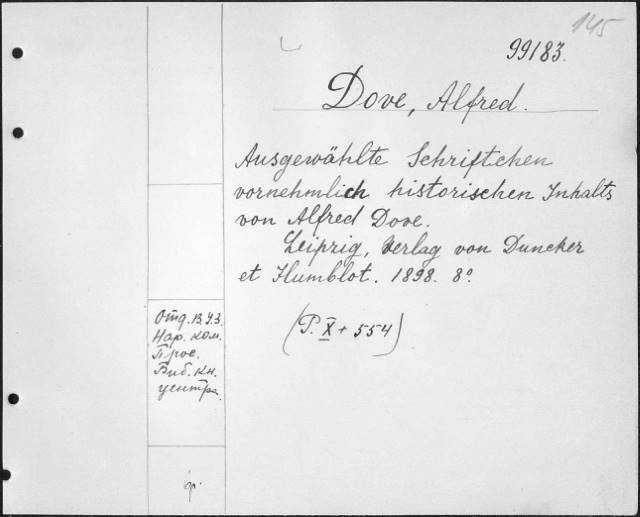 145
99183.
Dove, Alfred.
Ausgewählte Schriftchen
vornehmlich historischen Inhalts
von Alfred Dove.
Leipzig, Verlag von Duncker
et Humblot. 1898. 8º.
(P. X + 554)
Отд. В.У.З.
Нар. ком.
Прос.
Биб. кн.
центра.